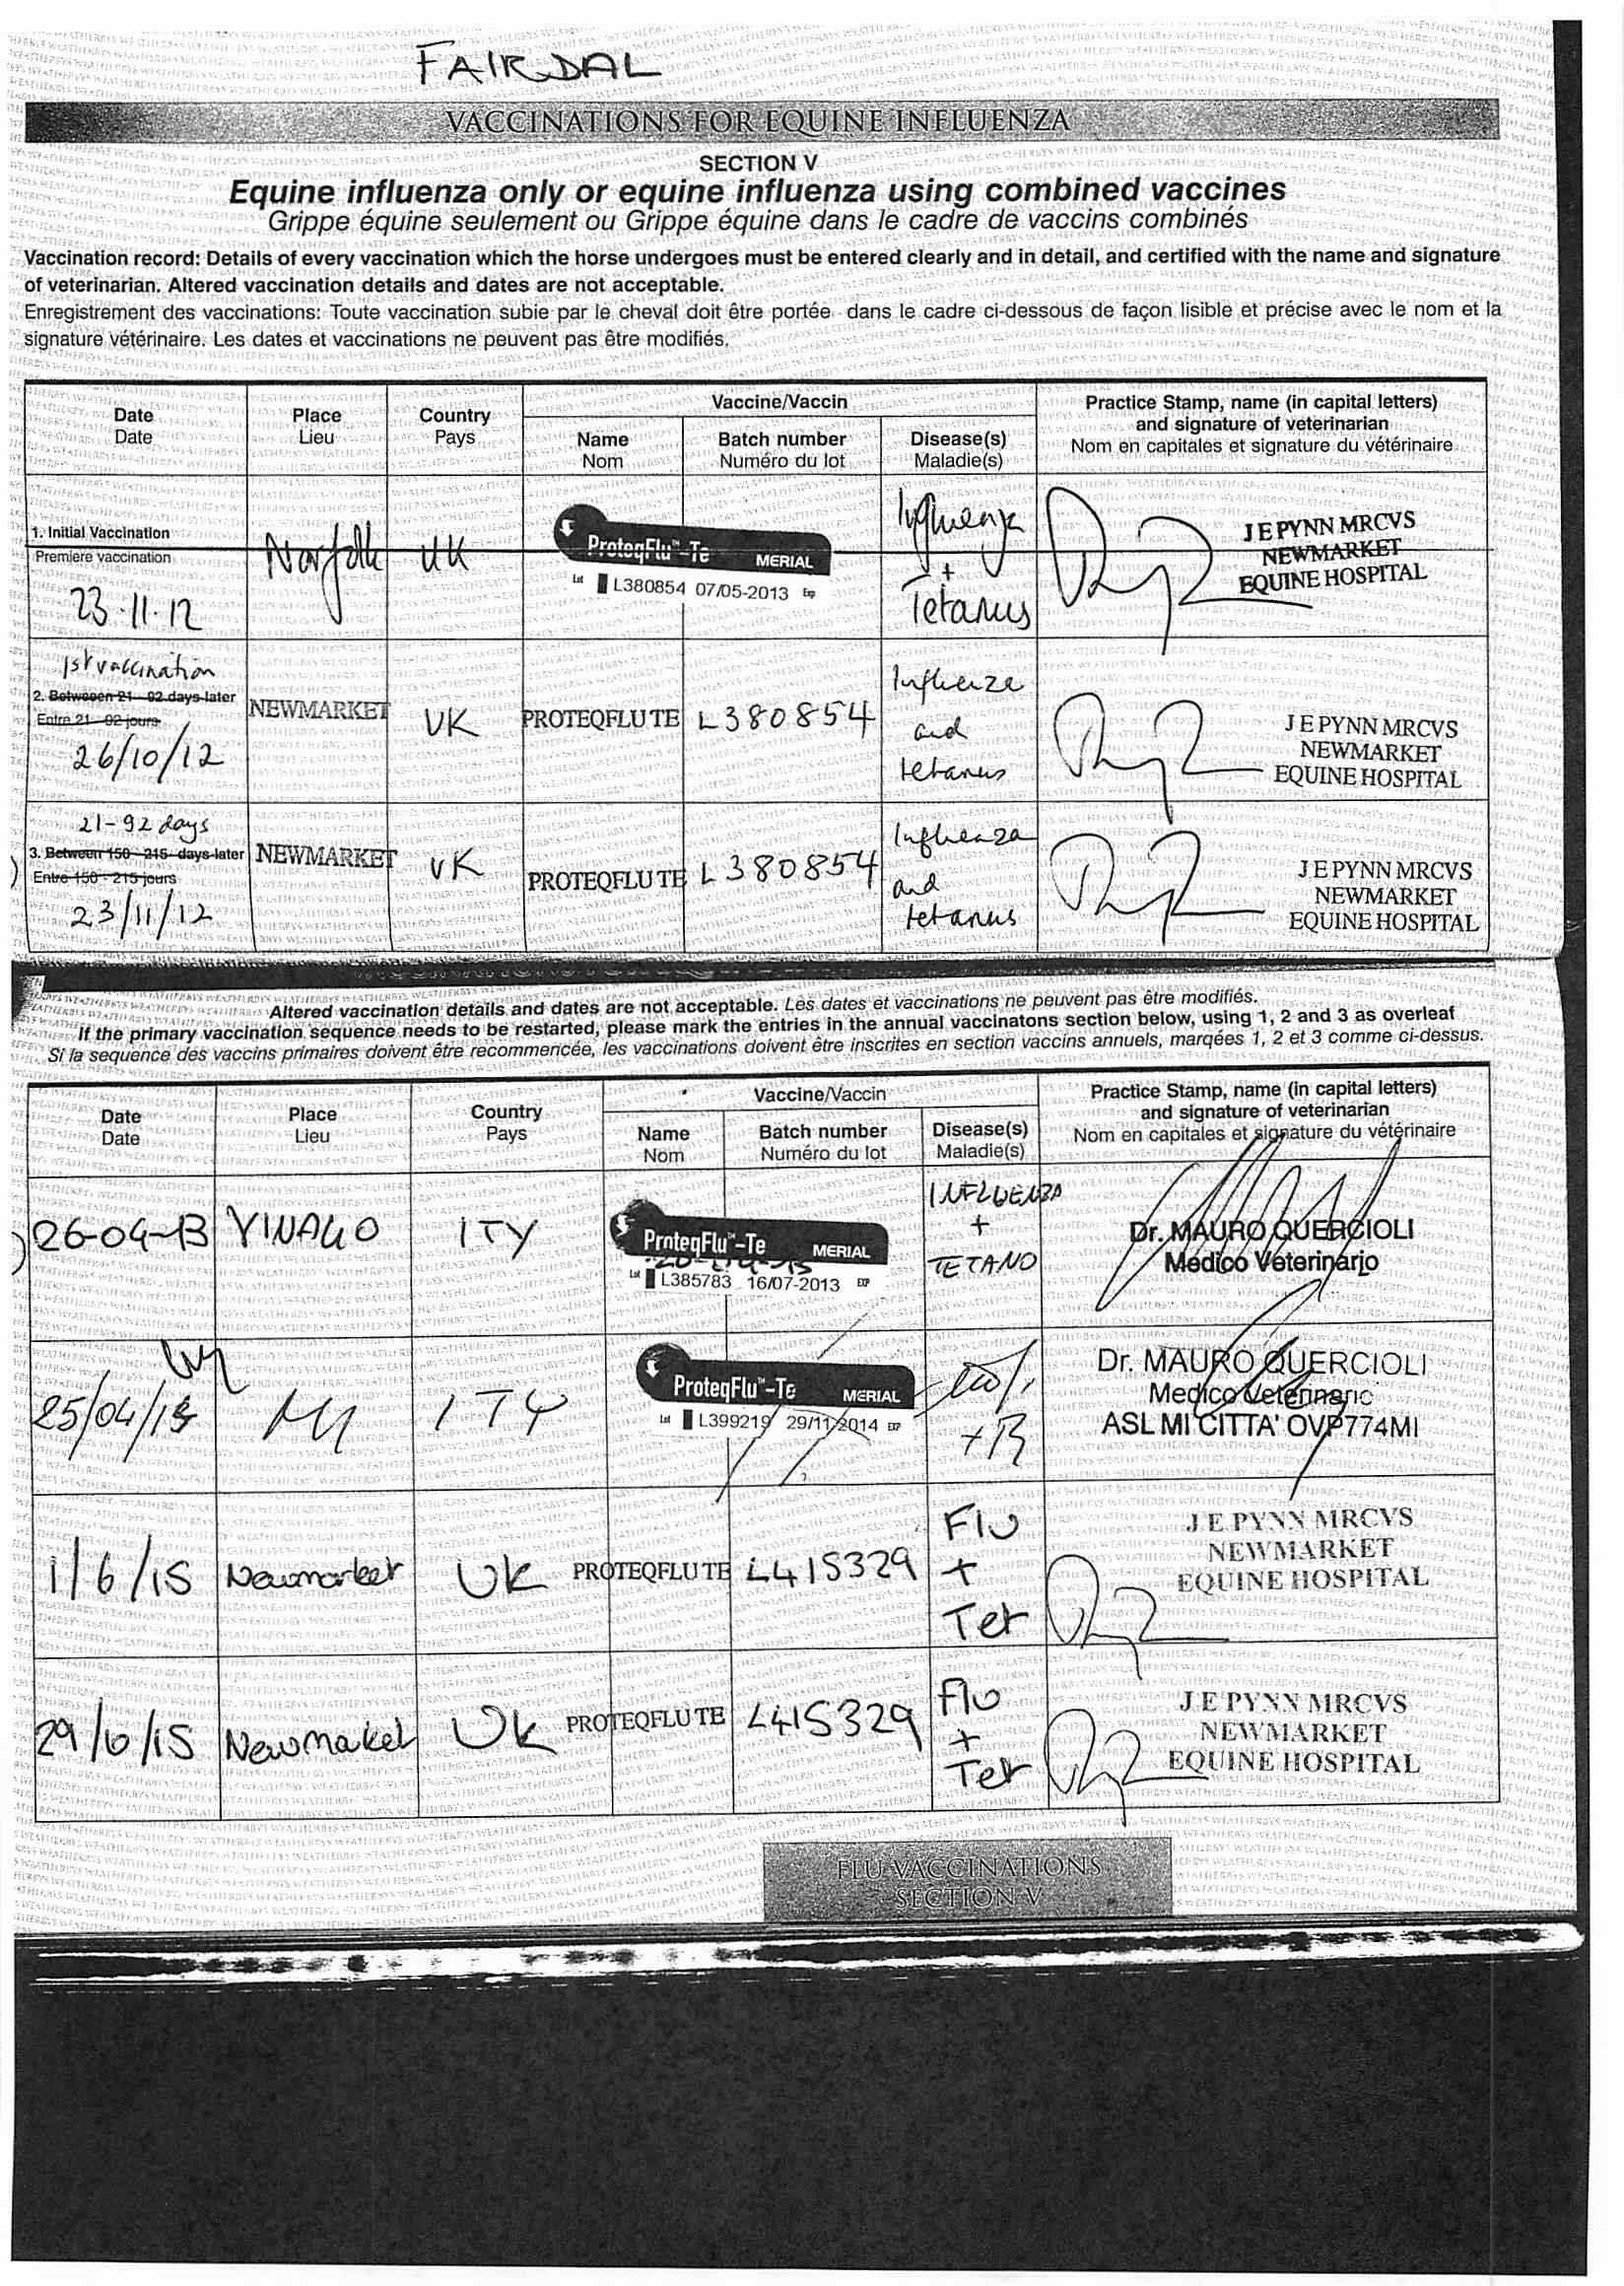 FAIRDAL
VACCINATIONS FOR EQUINE INFLUENZA
SECTION V
Equine influenza only or equine influenza using combined vaccines
Grippe équine seulement ou Grippe équine dans le cadre de vaccins combinés
Vaccination record: Details of every vaccination which the horse undergoes must be entered clearly and in detail, and certified with the name and signature
of veterinarian. Altered vaccination details and dates are not acceptable.
Enregistrement des vaccinations: Toute vaccination subie par le cheval doit être portée dans le cadre ci-dessous de façon lisible et précise avec le nom et la
signature vétérinaire. Les dates et vaccinations ne peuvent pas être modifiés.
Date
Date
Place
Lieu
Country
Pays
Vaccine/Vaccin
Name
Nom
Batch number
Numéro du lot
Disease(s)
Maladie(s)
Practice Stamp, name (in capital letters)
and signature of veterinarian
Nom en capitales et signature du vétérinaire
1. Initial Vaccination
Première vaccination
23.11.12
Norfolk
UK
ProteqFlu™-Te MERIAL
Lot L380854 07/05-2013 Exp
Influenza
+
Tetanus
J E PYNN MRCVS
NEWMARKET
EQUINE HOSPITAL
1st vaccination
2. Between 21 - 92 days later
Entre 21 - 92 jours
26/10/12
NEWMARKET
UK
PROTEQFLU TE
L380854
Influenza
and
tetanus
J E PYNN MRCVS
NEWMARKET
EQUINE HOSPITAL
21-92 days
3. Between 150 - 215 days later
Entre 150 - 215 jours
23/11/12
NEWMARKET
UK
PROTEQFLU TE
L380854
Influenza
and
tetanus
J E PYNN MRCVS
NEWMARKET
EQUINE HOSPITAL
Altered vaccination details and dates are not acceptable. Les dates et vaccinations ne peuvent pas être modifiés.
If the primary vaccination sequence needs to be restarted, please mark the entries in the annual vaccinatons section below, using 1, 2 and 3 as overleaf
Si la sequence des vaccins primaires doivent être recommencée, les vaccinations doivent être inscrites en section vaccins annuels, marqées 1, 2 et 3 comme ci-dessus.
Date
Date
Place
Lieu
Country
Pays
Vaccine/Vaccin
Name
Nom
Batch number
Numéro du lot
Disease(s)
Maladie(s)
Practice Stamp, name (in capital letters)
and signature of veterinarian
Nom en capitales et signature du vétérinaire
26-04-13
ITY
ProteqFlu™-Te MERIAL
Lot L385783 16/07-2013 EXP
INFLUENZA
+
TETANO
Dr. MAURO QUERCIOLI
Medico Veterinario
25/04/
MI
ITY
ProteqFlu™-Te MERIAL
Lot L399219 29/11-2014 EXP
Dr. MAURO QUERCIOLI
Medico Veterinario
ASL MI CITTA' OVP774MI
1/6/15
Newmarket
UK
PROTEQFLU TE
L415329
Flu
+
Tet
J E PYNN MRCVS
NEWMARKET
EQUINE HOSPITAL
29/6/15
Newmaket
UK
PROTEQFLU TE
L415329
Flu
+
Tet
J E PYNN MRCVS
NEWMARKET
EQUINE HOSPITAL
FLU VACCINATIONS
SECTION V